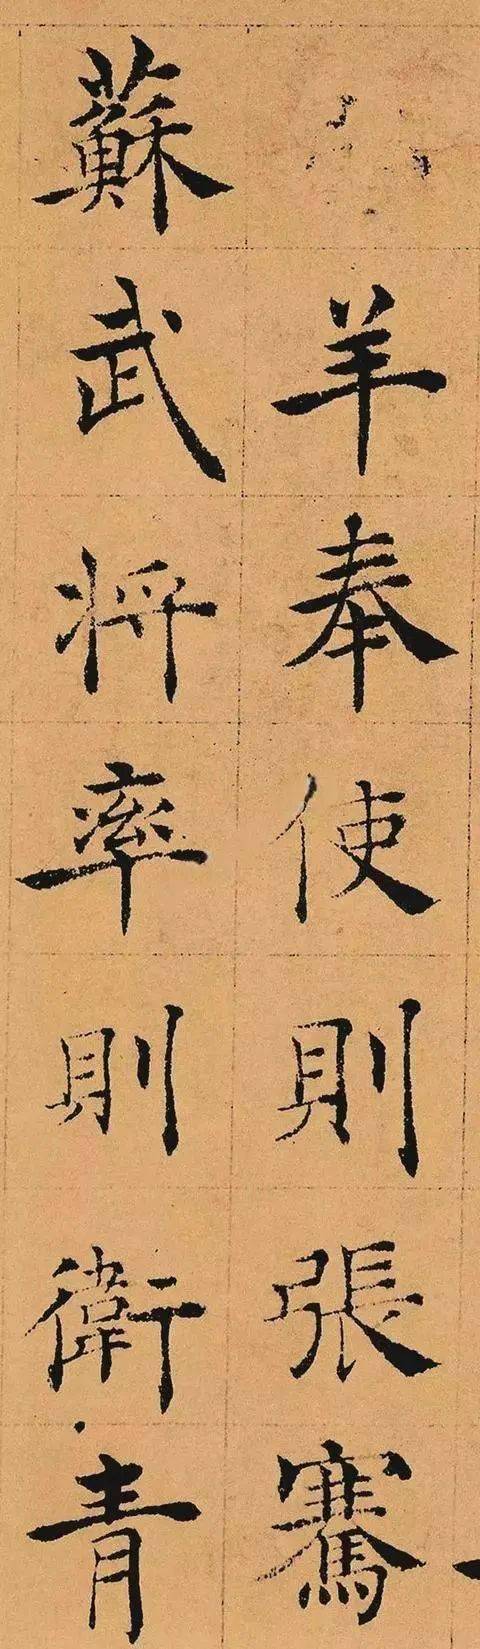 羊奉使則張騫
蘇武將率則衛青